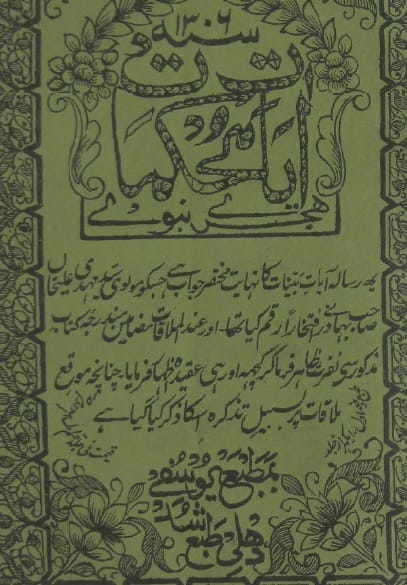 سنہ ۱۳۰۶
آیات محکمات
ہجری نبوی
یہ رسالہ آیات بینات کا نہایت مختصر جواب ہے جسکو مولوی سید مہدی علیخان
صاحب بہادر نے افتخاراً رقم کیا تھا۔ اور عند الملاقات مضامین مندرجہ کتاب
مذکور سے نفرت ظاہر فرما کر کچھ اور ہی عقیدہ اظہار فرمایا۔ چنانچہ موقع
ملاقات پر بسبیل تذکرہ اسکا ذکر کیا گیا ہے
بمطبع یوسفی
دہلی طبع شد